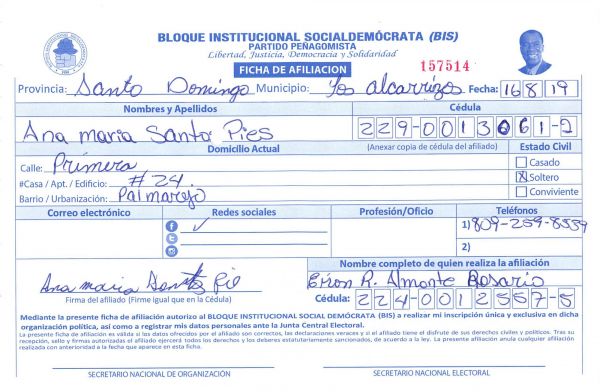 BLOQUE INSTITUCIONAL SOCIALDEMÓCRATA (BIS)
PARTIDO PEÑAGOMISTA
Libertad, Justicia, Democracia y Solidaridad
FICHA DE AFILIACION
157514
Provincia: Santo Domingo Municipio: Los alcarrizos Fecha: 16 8 19
Nombres y Apellidos Cédula
Ana maria Santo Pies 229-0013061-2
Domicilio Actual (Anexar copia de cédula del afiliado) Estado Civil
Calle: Primera Casado
#Casa / Apt. / Edificio: #24 Soltero
Barrio / Urbanización: Palmarejo Conviviente
Correo electrónico Redes sociales Profesión/Oficio Teléfonos
1) 809-259-8559
2)
Nombre completo de quien realiza la afiliación
Ana maria R. Almonte Rosario
Firma del afiliado (Firme igual que en la Cédula) Cédula: 224-0012557-5
Mediante la presente ficha de afiliación autorizo al BLOQUE INSTITUCIONAL SOCIAL DEMÓCRATA (BIS) a realizar mi inscripción única y exclusiva en dicha
organización política, así como a registrar mis datos personales ante la Junta Central Electoral.
La presente ficha de afiliación es válida si los datos ofrecidos por el afiliado son correctos, las declaraciones veraces y si el afiliado tiene el disfrute de sus derechos civiles y políticos. Tras su
recepción, sello y firmas autorizadas el afiliado ejercerá todos los derechos y los deberes estatutariamente sancionados, de acuerdo a la ley. La presente afiliación anula cualquier afiliación
realizada con anterioridad a la fecha que aparece en esta ficha.
SECRETARIO NACIONAL DE ORGANIZACIÓN SECRETARIO NACIONAL ELECTORAL